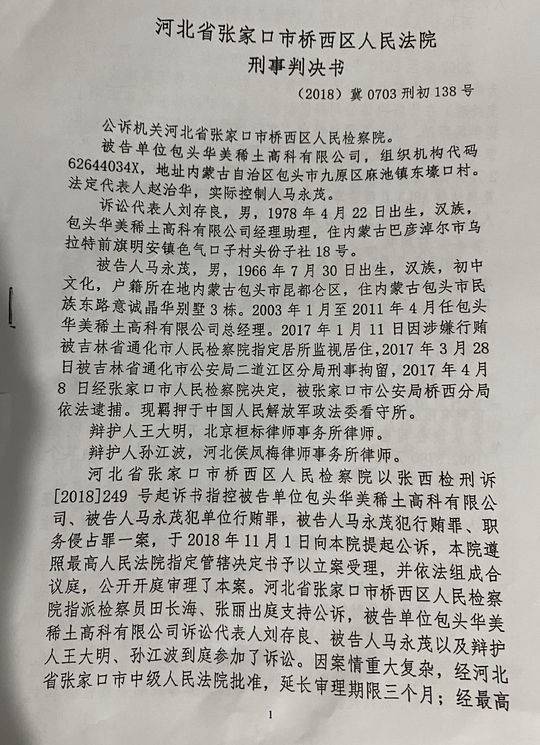 河北省张家口市桥西区人民法院
刑事判决书
（2018）冀 0703 刑初 138 号
公诉机关河北省张家口市桥西区人民检察院。
被告单位包头华美稀土高科有限公司，组织机构代码
62644034X，地址内蒙古自治区包头市九原区麻池镇东壕口村。
法定代表人赵治华，实际控制人马永茂。
诉讼代表人刘存良，男，1978 年 4 月 22 日出生，汉族，
包头华美稀土高科有限公司经理助理，住内蒙古巴彦淖尔市乌
拉特前旗明安镇色气口子村头份子社 18 号。
被告人马永茂，男，1966 年 7 月 30 日出生，汉族，初中
文化，户籍所在地内蒙古包头市昆都仑区，住内蒙古包头市民
族东路意诚晶华别墅 3 栋。2003 年 1 月至 2011 年 4 月任包头
华美稀土高科有限公司总经理。2017 年 1 月 11 日因涉嫌行贿
被吉林省通化市人民检察院指定居所监视居住,2017 年 3 月 28
日被吉林省通化市公安局二道江区分局刑事拘留，2017 年 4 月
8 日经张家口市人民检察院决定，被张家口市公安局桥西分局
依法逮捕。现羁押于中国人民解放军政法委看守所。
辩护人王大明，北京桓标律师事务所律师。
辩护人孙江波，河北侯凤梅律师事务所律师。
河北省张家口市桥西区人民检察院以张西检刑诉
[2018]249 号起诉书指控被告单位包头华美稀土高科有限公
司、被告人马永茂犯单位行贿罪，被告人马永茂犯行贿罪、职
务侵占罪一案，于 2018 年 11 月 1 日向本院提起公诉，本院遵
照最高人民法院指定管辖决定书予以立案受理，并依法组成合
议庭，公开开庭审理了本案。河北省张家口市桥西区人民检察
院指派检察员田长海、张丽出庭支持公诉，被告单位包头华美
稀土高科有限公司诉讼代表人刘存良、被告人马永茂以及辩护
人王大明、孙江波到庭参加了诉讼。因案情重大复杂，经河北
省张家口市中级人民法院批准，延长审理期限三个月；经最高
1